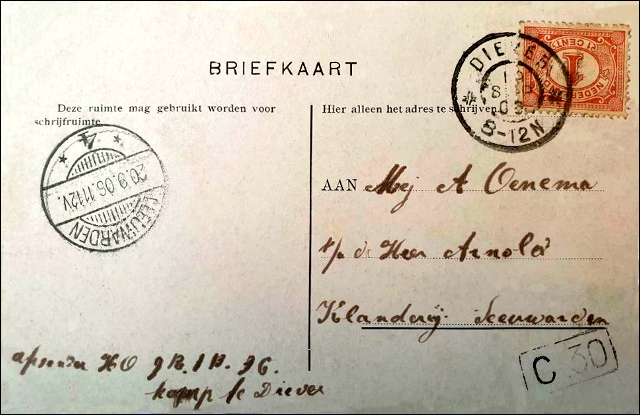 BRIEFKAART
Deze ruimte mag gebruikt worden voor
schrijfruimte.
Hier alleen het adres te schrijven.
1 CENT
NEDER
1
DIEVER
SEP
8-12N
4
20.9.06.11-12V.
LEEUWARDEN
AAN Mej A Oenema
p/a de Heer Arnold
Klanderij Leeuwarden
afsender HO
te Diever
C 30